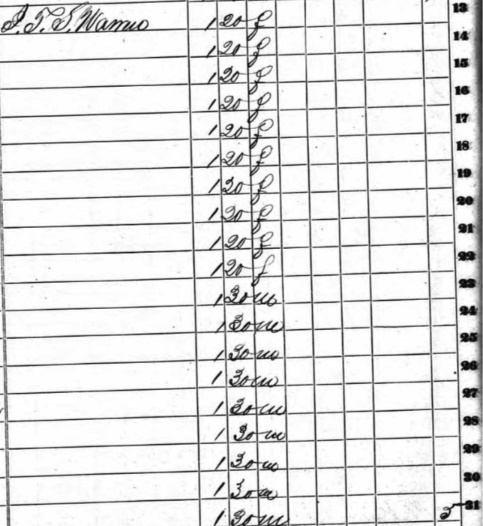 13
1 20 f 14
1 20 f 15
1 20 f 16
1 20 f 17
1 20 f 18
1 20 f 19
1 20 f 20
1 20 f 21
1 20 f 22
1 20 f 23
1 30 m 24
1 30 m 25
1 30 m 26
1 30 m 27
1 30 m 28
1 30 m 29
1 30 m 30
1 30 m 3 31
1 30 m